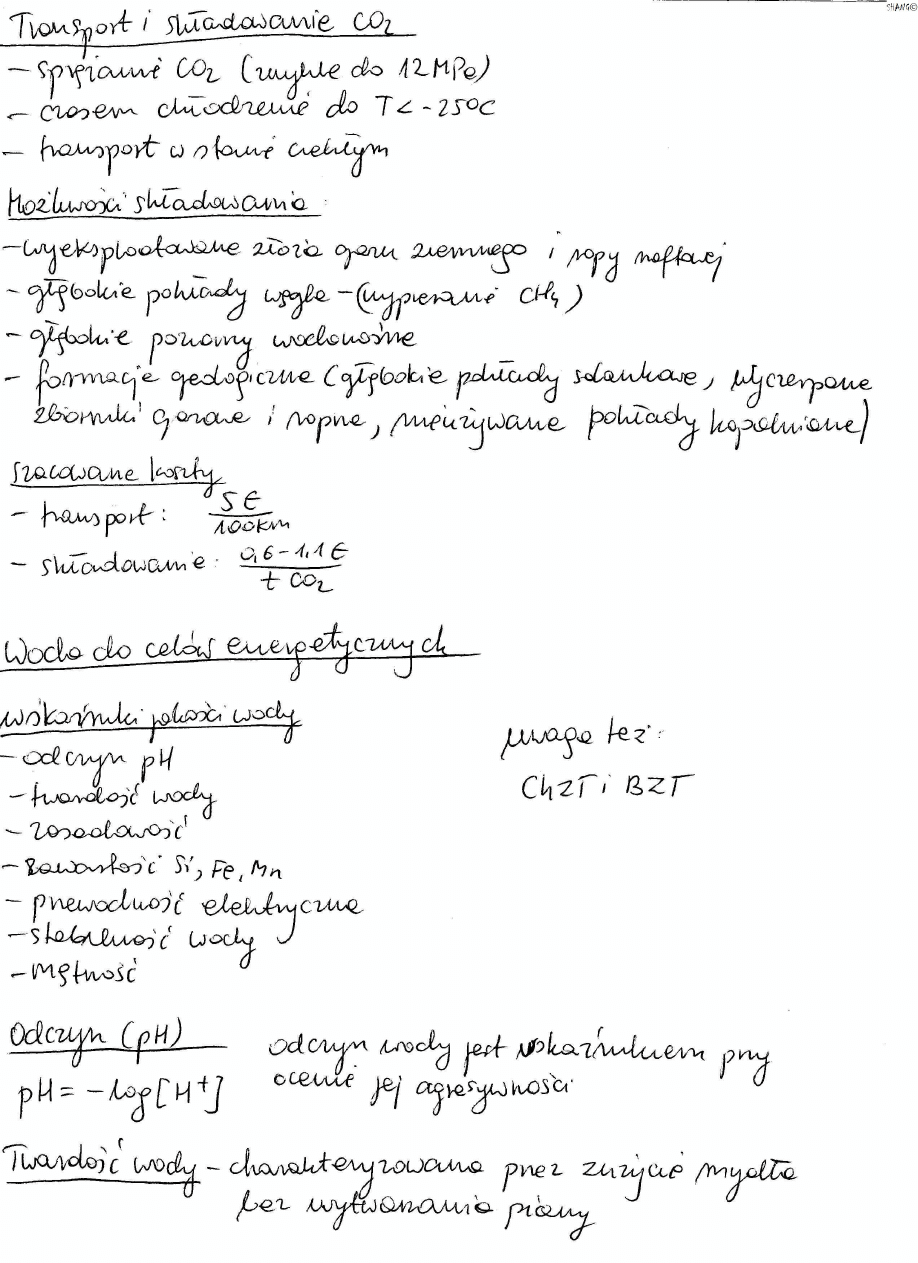 SHANG©
Transport i składowanie CO₂
- sprężanie CO₂ (zwykle do 12 MPa)
- czasem chłodzenie do T < -25°C
- transport w stanie ciekłym
Możliwości składowania:
- wyeksploatowane złoża gazu ziemnego i ropy naftowej
- głębokie pokłady węgla - (wypieranie CH₄)
- głębokie poziomy wodonośne
- formacje geologiczne (głębokie pokłady solankowe, wyczerpane
zbiorniki gazowe i ropne, nieużywane pokłady kopalniane)
Szacowane koszty
- transport: 5 € / 100 km
- składowanie: 0,6 - 1,1 € / t CO₂
Woda do celów energetycznych
Wskaźniki jakości wody
- odczyn pH
uwaga też:
- twardość wody
ChZT i BZT
- zasadowość
- zawartość Si, Fe, Mn
- przewodność elektryczna
- stabilność wody
- mętność
Odczyn (pH)
odczyn wody jest wskaźnikiem przy
ocenie jej agresywności
pH = -log[H⁺]
Twardość wody - charakteryzowana przez zużycie mydła
bez wytwarzania piany